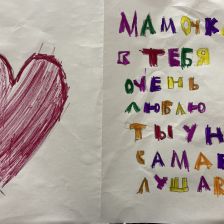 МАМОЧК
Я ТЕБЯ
ОЧЕНЬ
ЛЮБЛЮ
ТЫ У Н
САМАЯ
ЛУШАЯ